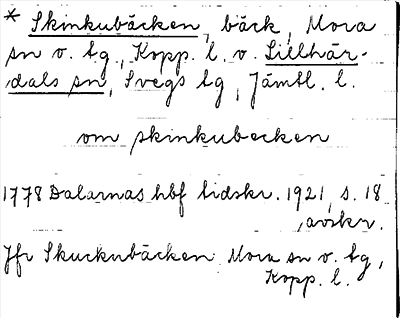 * Skinkubäcken, bäck, Mora
sn o. tg, Kopp. l. o. Lillhär-
dals sn, Svegs tg, Jämtl. l.
om skinkubecken
1778 Dalarnas hbf tidskr. 1921, s. 18
, avskr.
Jfr Skuckubäcken Mora sn o. tg,
Kopp. l.